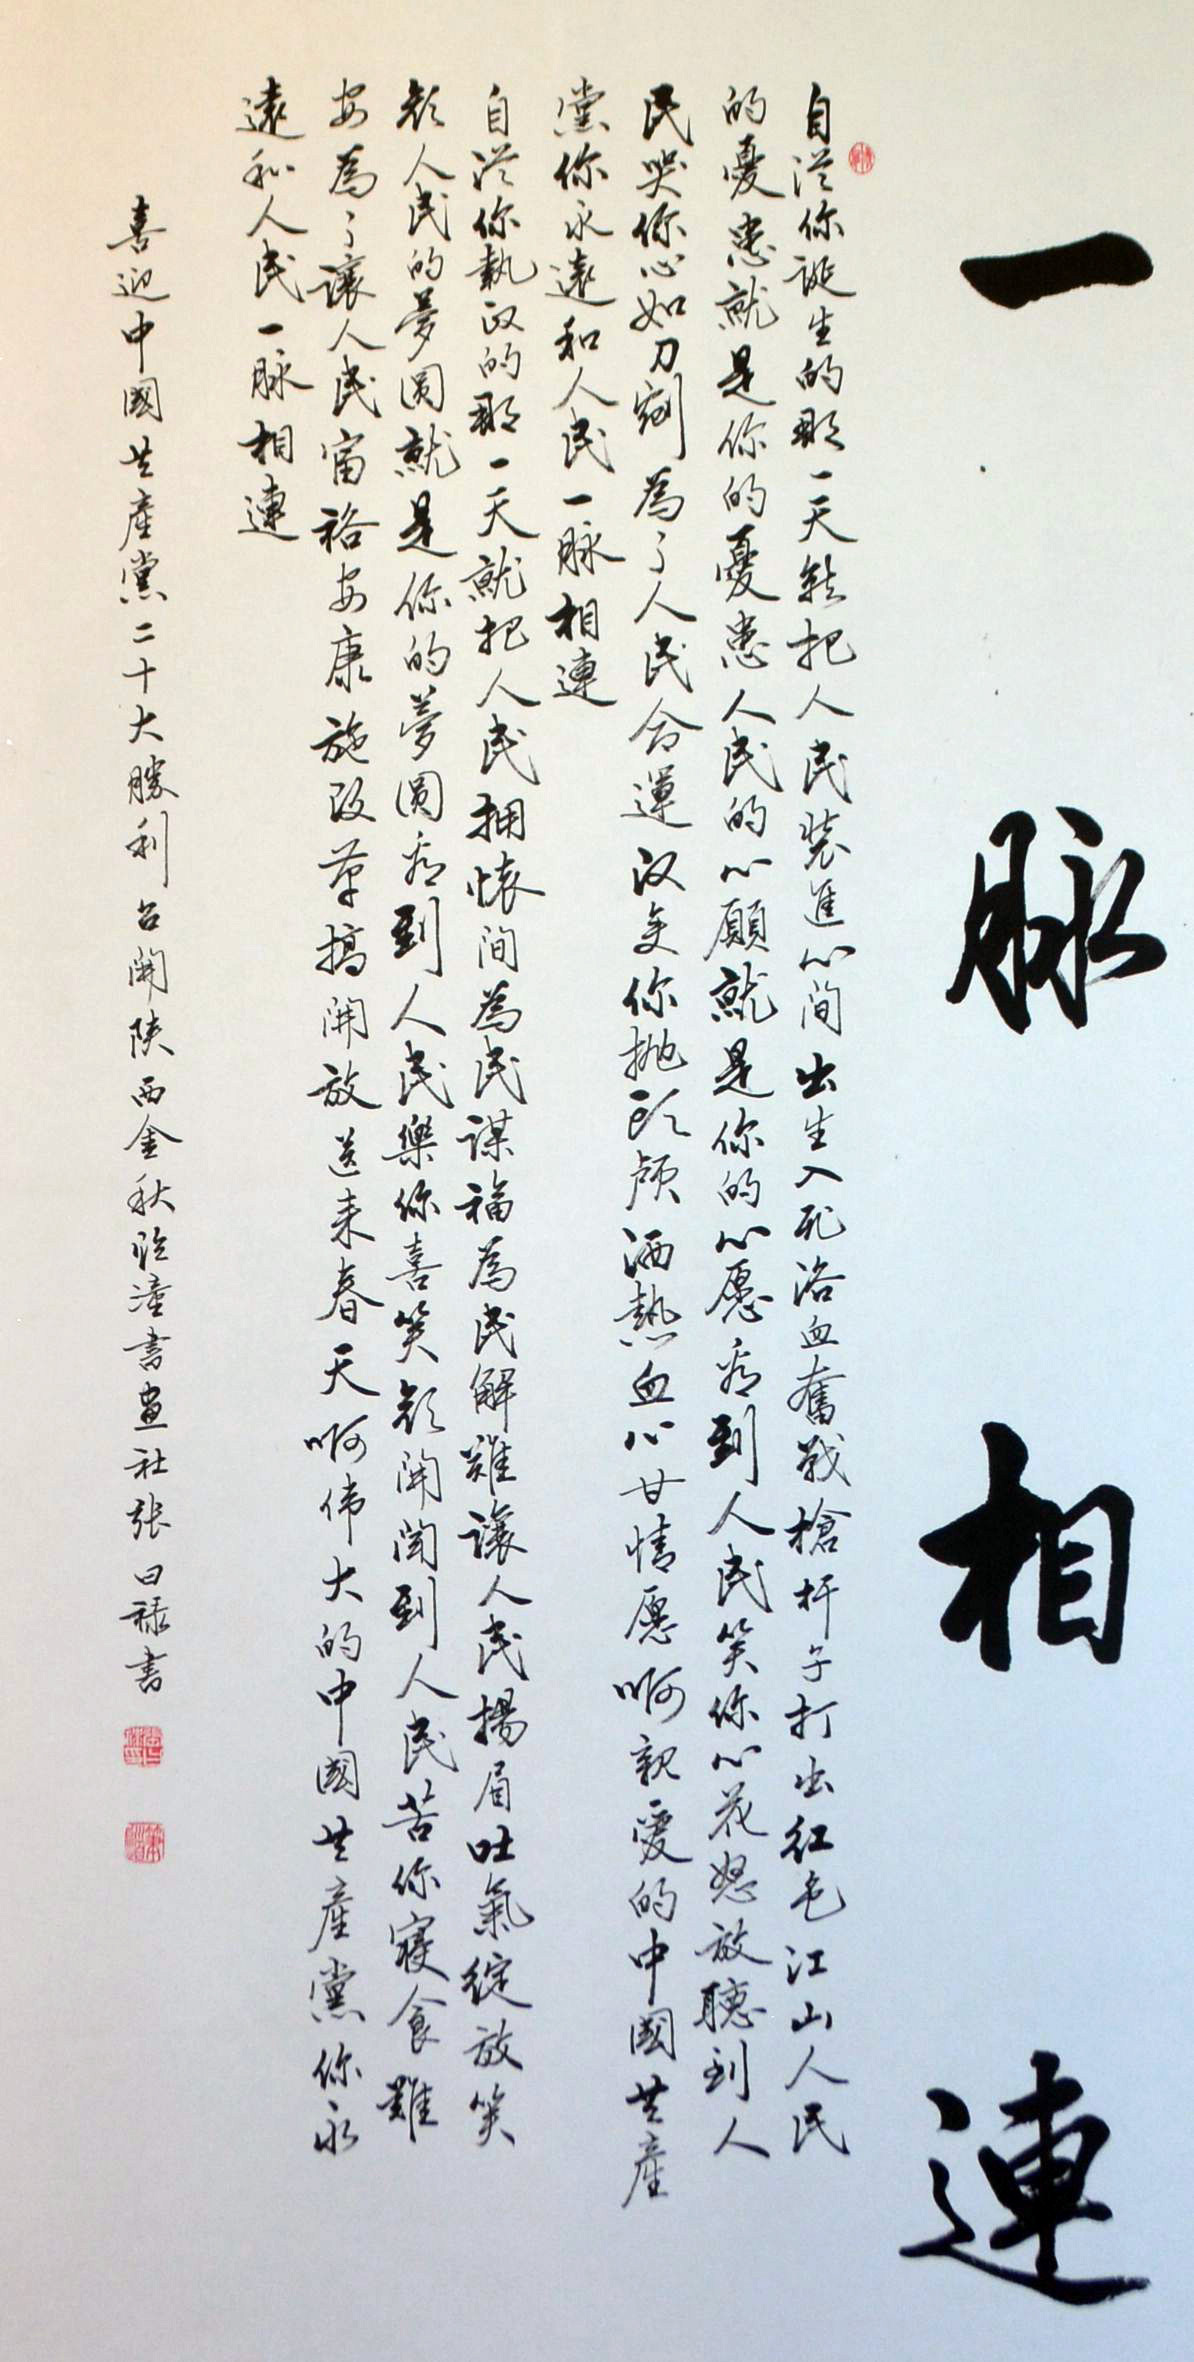 一脉相連
自從你誕生的那一天就把人民裝進心間出生入死浴血奮戰槍杆子打出红色江山人民
的憂患就是你的憂患人民的心願就是你的心愿看到人民笑你心花怒放聽到人
民哭你心如刀割為了人民命運改变你抛头颅洒熱血心甘情愿啊親愛的中國共產
黨你永遠和人民一脉相連
自從你執政的那一天就把人民拥懷间為民謀福為民解難讓人民揚眉吐氣綻放笑
颜人民的夢圆就是你的夢圆看到人民樂你喜笑颜開闻到人民苦你寢食難
安為了讓人民富裕安康施改革搞開放送来春天啊伟大的中國共產黨你永
遠和人民一脉相連
喜迎中國共產黨二十大勝利召開陕西金秋临潼書画社张日禄書